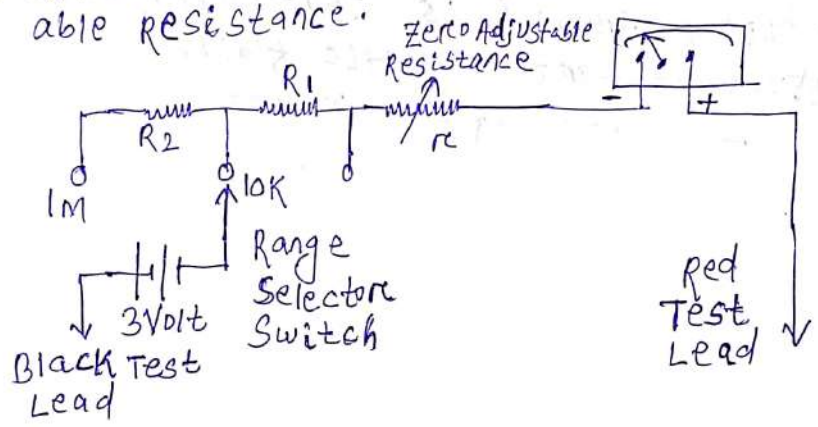 able Resistance.
Zero Adjustable
Resistance
R1
R2
r
-
+
1M
10K
3Volt
Range
Selector
Switch
Black Test
Lead
Red
Test
Lead